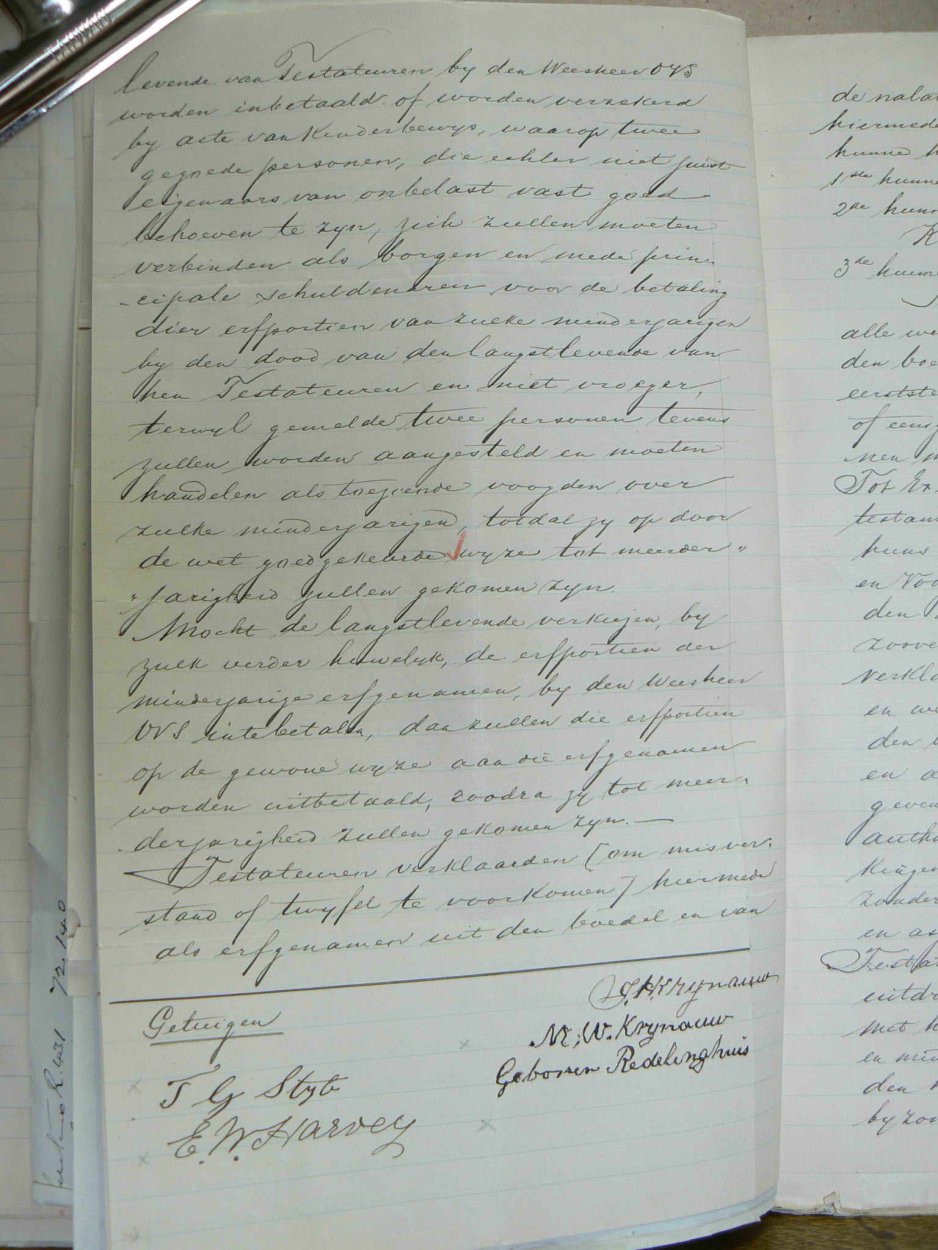 levende van Testateuren by den Weesheer OVS
worden inbetaald of worden verzekerd
by acte van Kinderbewys, waarop twee
gegoede personen, die echter niet juist
eigenaars van onbelast vast goed
behoeven te zyn, zich zullen moeten
verbinden als borgen en mede prin„
„cipale schuldenaren voor de betaling
dier erfportien van zulke minderjarigen
by den dood van den langstlevende van
hen Testateuren en niet vroeger,
terwyl gemelde twee personen tevens
zullen worden aangesteld en moeten
handelen als toeziende voogden over
zulke minderjarigen, totdat zy op door
de wet goedgekeurde wyze tot meerder„
„jarigheid zullen gekomen zyn.
Mocht de langstlevende verkiezen, by
zulk verder huwelyk, de erfportien der
minderjarige erfgenamen, by den Weesheer
OVS intebetalen, dan zullen die erfportien
op de gewone wyze aan die erfgenamen
worden uitbetaald, zoodra zy tot meer„
„derjarigheid zullen gekomen zyn. —
Testateuren verklaarden [om misver„
stand of twyfel te voorkomen] hiermede
als erfgenamen uit den boedel en van
Getuigen
J. H. Krynauw
M. W. Krynauw
Geboren Redelinghuis
T G Styt
E. W. Harvey
72.14.0
R. 431
de nala
hiermede
hunne
1ste hunne
2de hun
K
3de hunne
alle we
den boe
eerstste
of eenig
nen m
Tot Ex
testam
huns
en Voo
den
zoove
verkla
en we
den
en a
geven
auth
kingen
zonder
en as
Testat
uitdr
met h
en min
den
by zon